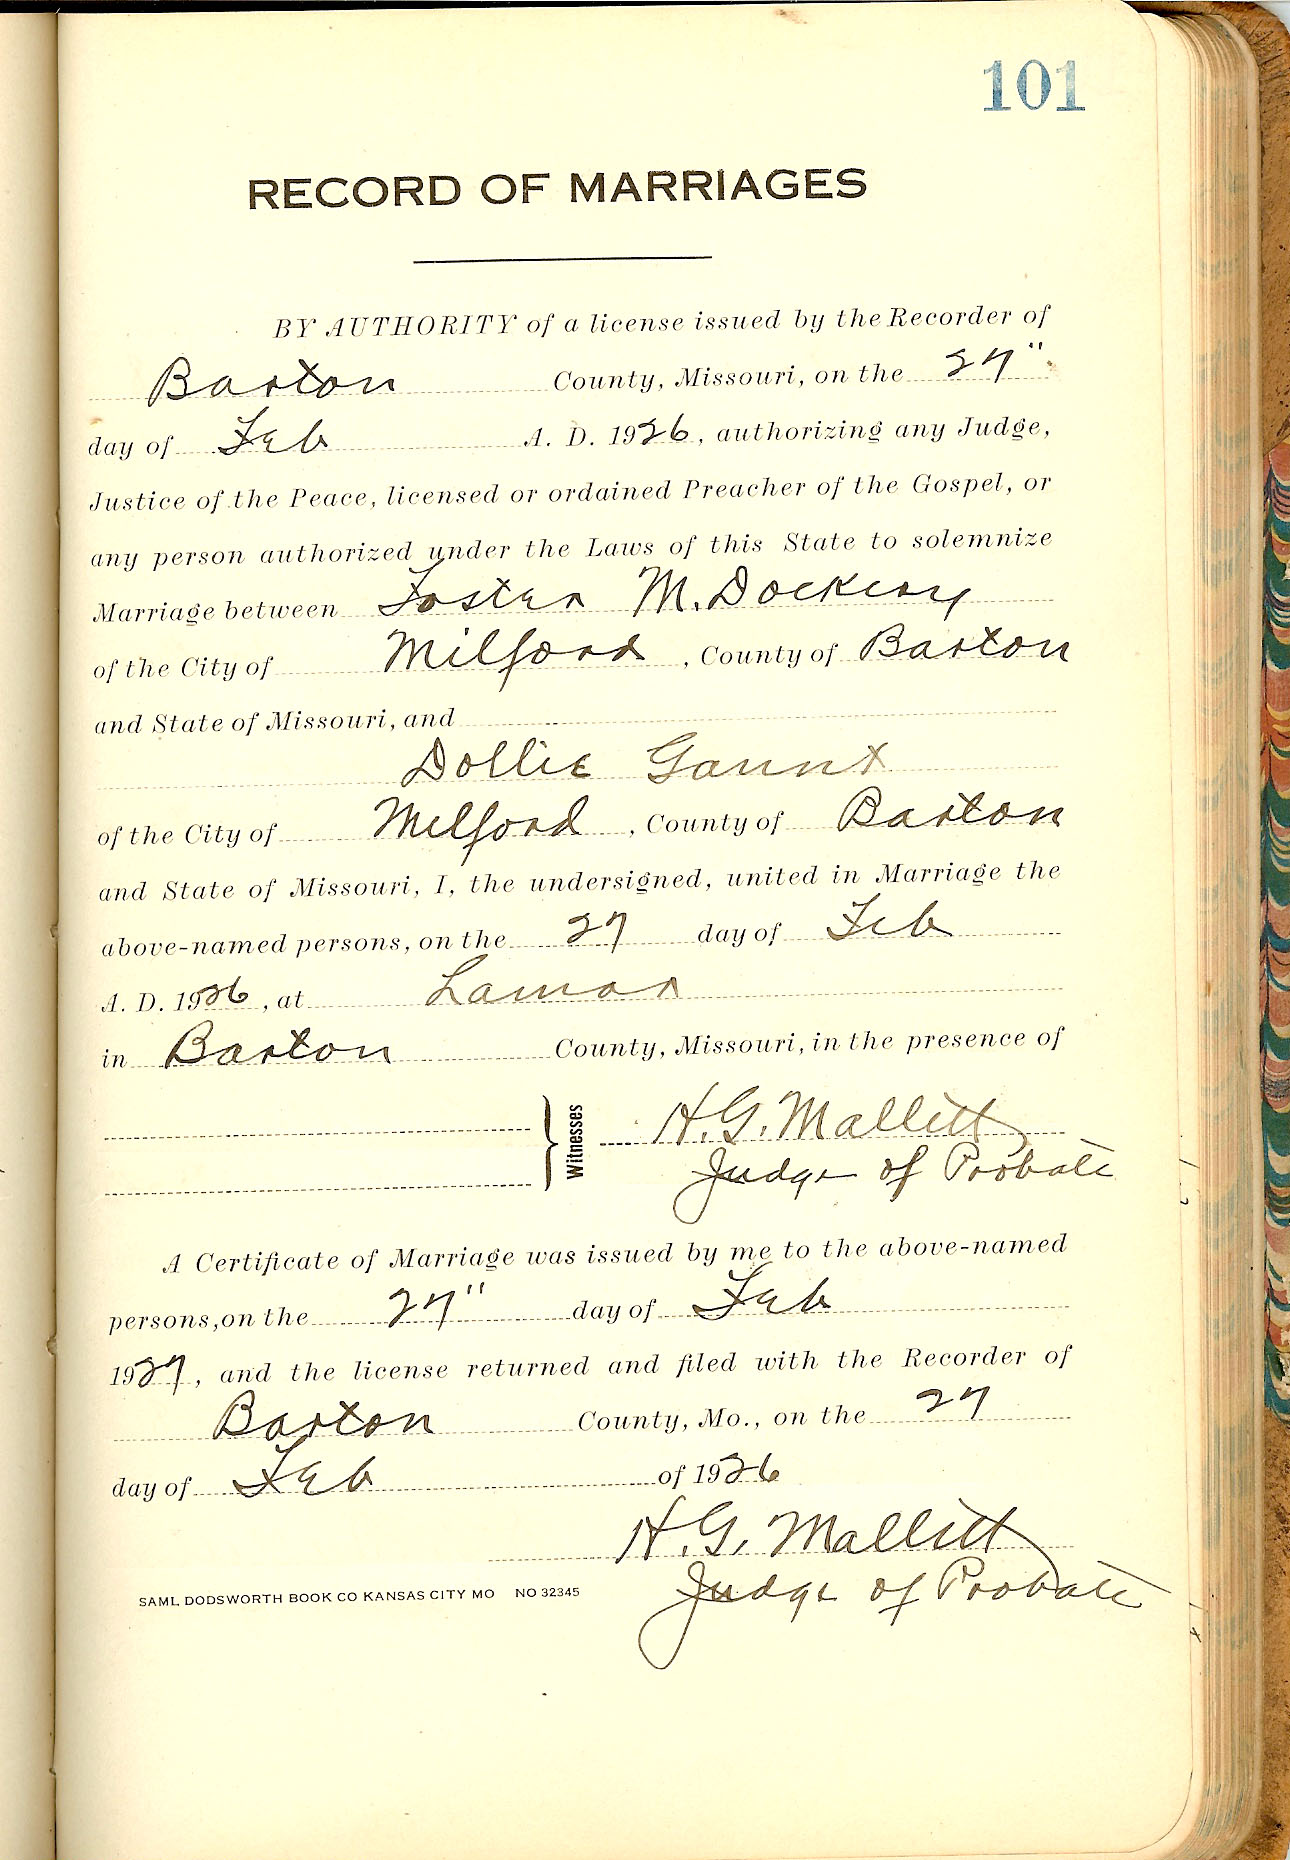 101
RECORD OF MARRIAGES
BY AUTHORITY of a license issued by the Recorder of
Barton County, Missouri, on the 27"
day of Feb A. D. 1926, authorizing any Judge,
Justice of the Peace, licensed or ordained Preacher of the Gospel, or
any person authorized under the Laws of this State to solemnize
Marriage between Foster M. Dockery
of the City of Milford, County of Barton
and State of Missouri, and
Dollie Gaunt
of the City of Milford, County of Barton
and State of Missouri, I, the undersigned, united in Marriage the
above-named persons, on the 27 day of Feb
A. D. 1926, at Lamar
in Barton County, Missouri, in the presence of
Witnesses H. G. Mallitt
Judge of Probate
A Certificate of Marriage was issued by me to the above-named
persons, on the 27" day of Feb
1927, and the license returned and filed with the Recorder of
Barton County, Mo., on the 27
day of Feb of 1926
H. G. Mallitt
SAML DODSWORTH BOOK CO KANSAS CITY MO NO 32345 Judge of Probate